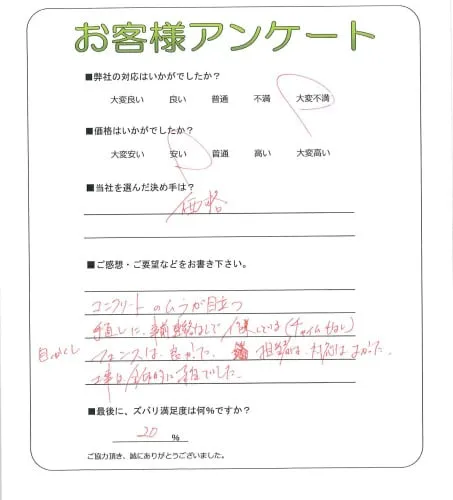 お客様アンケート
■弊社の対応はいかがでしたか?
大変良い 良い 普通 不満 大変不満
■価格はいかがでしたか?
大変安い 安い 普通 高い 大変高い
■当社を選んだ決め手は?
価格
■ご感想・ご要望などをお書き下さい。
コンクリートのムラが目立つ
手直しに、事前連絡なしで 作業している(チャイムもなし)
目かくし
フェンスは、良かった。 担当者は、対応はよかった。
工事は全体的に でした。
■最後に、ズバリ満足度は何%ですか?
20 %
ご協力頂き、誠にありがとうございました。